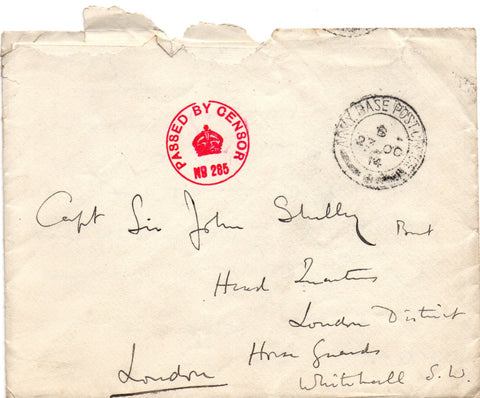 PASSED BY CENSOR
No 285
ARMY BASE POST OFFICE
27 OC
14
Capt Sir John Shelley Bart
Head Quarters
London District
Horse Guards
Whitehall S.W.
London